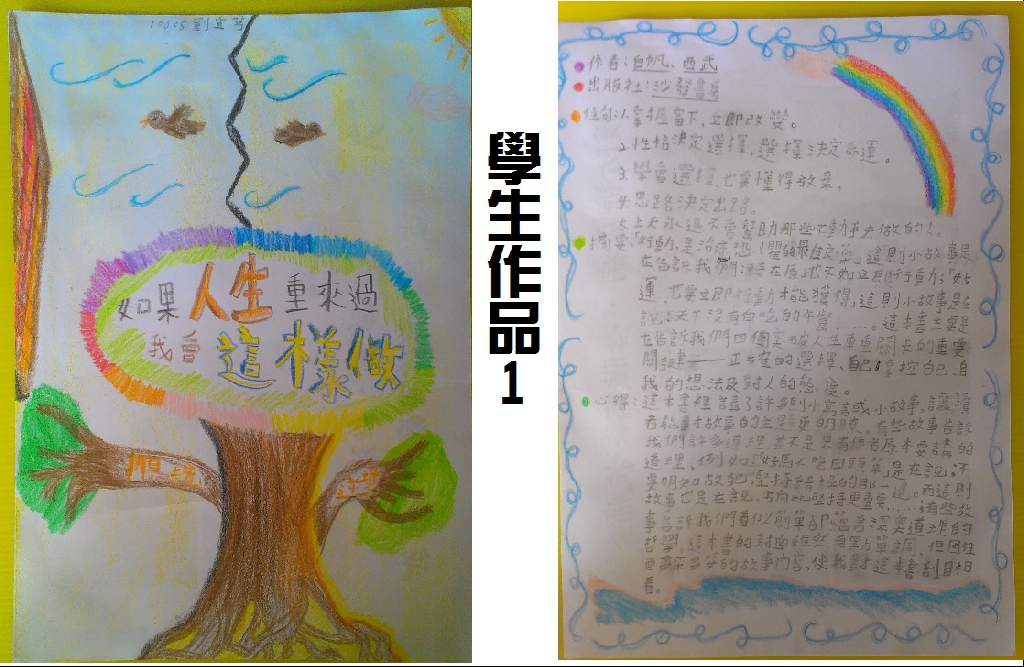 10005 劉宜芩
如果人生重來過
我會這樣做
學生作品1
作者:白帆、西武
出版社:沙發書房
佳句:1.掌握當下,立即改變。
2.性格決定選擇,選擇決定命運。
3.學會選擇,也要懂得放棄。
4.思路決定出路。
5.上天永遠不會幫助那些不動手去做的人。
摘要:「行動,是治療恐懼的最佳
這則小故事是
在告訴我們
立即行動;
運,也要立即行動才能獲得,這則小故事是在
說:天下沒有白吃的午餐……。這本書主要是
在告訴我們四個突破人生重重關卡的重要
關鍵——正確的選擇、自己掌控自己、自
我的想法及對人的態度。
心得:這本書裡講了許多則小寓言或小故事,讓讀
者能對故事的主題更明瞭。有些故事告訴
我們許多道理,並不是只有條君原本要講的
道理,例如:「好馬不吃回頭草」是在說:不
要明知故犯,堅持錯誤的那一邊。而這則
故事也是在說:方向比堅持更重要……;有些故
事告訴我們看似簡單卻蘊含深奧道理的
哲學。這本書的封面雖然有點單調,但因裡
面
的故事內容,使我對這本書刮目相
看。